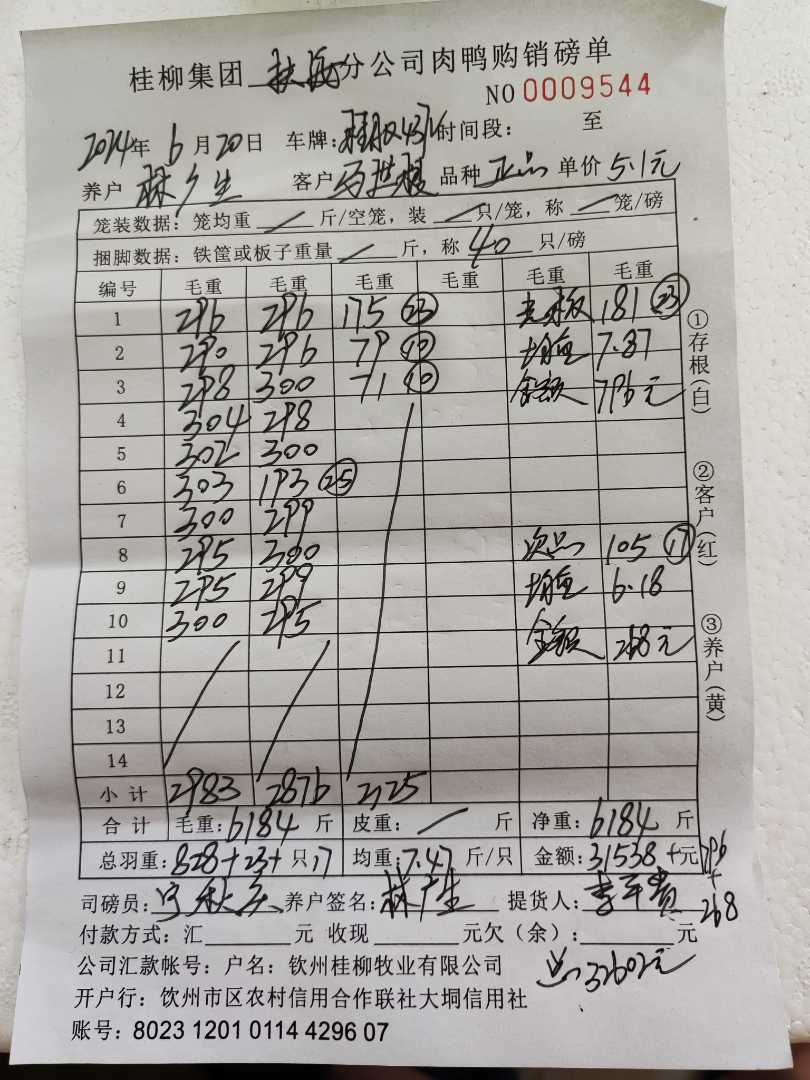 桂柳集团 分公司肉鸭购销磅单
NO 0009544
2024年 6月20日 车牌: 时间段: 至
养户 林广生 客户 品种 正品 单价 5.1元
笼装数据: 笼均重 / 斤/空笼, 装 / 只/笼, 称 / 笼/磅
捆脚数据: 铁筐或板子重量 / 斤, 称 40 只/磅
编号 毛重 毛重 毛重 毛重 毛重 毛重
1 296 296 175 (23) 181 (23)
2 290 296 79 (10) 均重 7.87
3 298 300 71 (10) 金额 796元
4 304 298
5 302 300
6 303 193 (25)
7 300 299
8 295 300 次品 105 (17)
9 295 299 均重 6.18
10 300 295 金额 268元
11
12
13
14
小计 2983 2876 325
合计 毛重: 6184 斤 皮重: / 斤 净重: 6184 斤
总羽重: 828+23+17 只 均重: 7.47 斤/只 金额: 31538+元 796
+
268
司磅员: 养户签名: 林广生 提货人:
付款方式: 汇 元 收现 元欠(余): 元
总 32602元
公司汇款帐号: 户名: 钦州桂柳牧业有限公司
开户行: 钦州市区农村信用合作联社大垌信用社
账号: 8023 1201 0114 4296 07
①存根(白)
②客户(红)
③养户(黄)